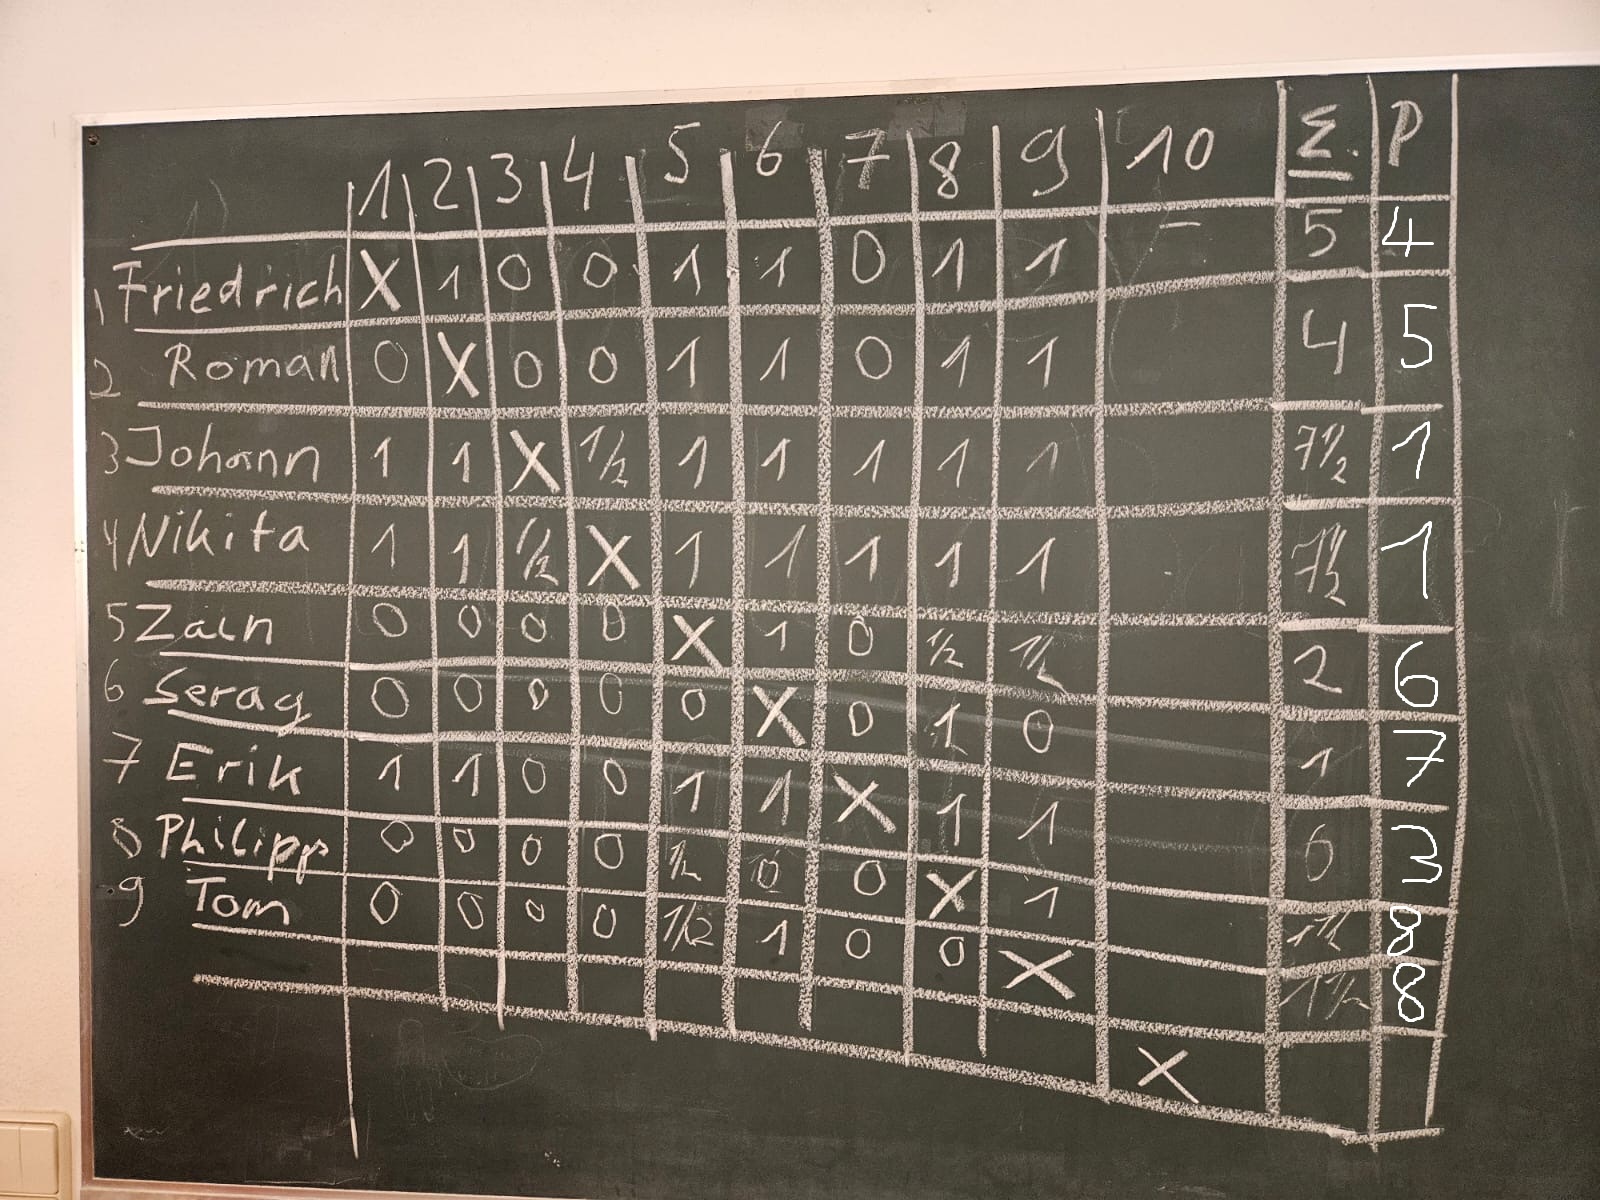 1 2 3 4 5 6 7 8 9 10 Σ. P
1 Friedrich X 1 0 0 1 1 0 1 1 – 5 4
2 Roman 0 X 0 0 1 1 0 1 1 4 5
3 Johann 1 1 X 1/2 1 1 1 1 1 7 1/2 1
4 Nikita 1 1 1/2 X 1 1 1 1 1 7 1/2 1
5 Zain 0 0 0 0 X 1 0 1/2 1/2 2 6
6 Serag 0 0 0 0 0 X 0 1 0 1 7
7 Erik 1 1 0 0 1 1 X 1 1 6 3
8 Philipp 0 0 0 0 1/2 0 0 X 1 1 1/2 8
9 Tom 0 0 0 0 1/2 1 0 0 X 1 1/2 8
X